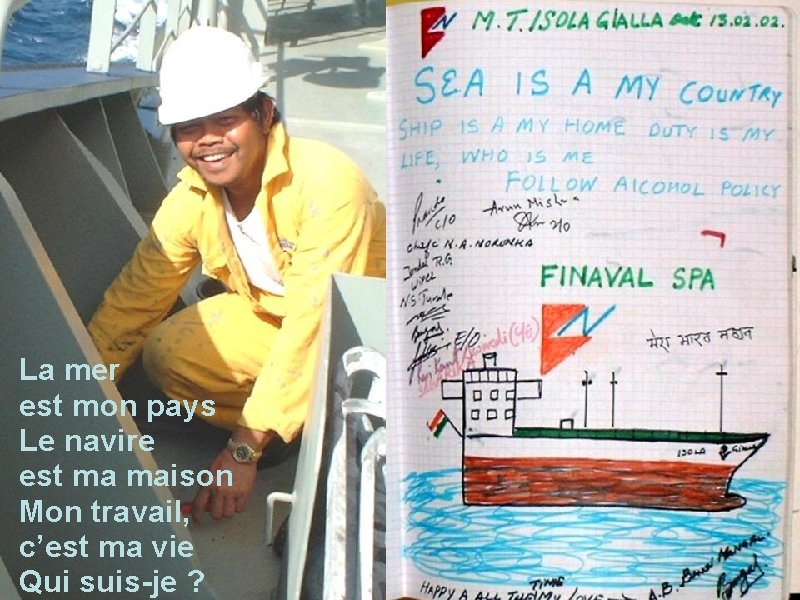 La mer
est mon pays
Le navire
est ma maison
Mon travail,
c'est ma vie
Qui suis-je ?
M.T. ISOLA GIALLA 13.02.02.
SEA IS A MY COUNTRY
SHIP IS A MY HOME DUTY IS MY
LIFE, WHO IS ME
FOLLOW AlCOHOL POLICY
C/O
Arun Mishra
2/O
N.A. NORONHA
R.G.
N.S.
E/O
FINAVAL SPA
मेरा भारत महान
ISOLA
TIME
HAPPY A ALL THE MY LOVE
A.B.